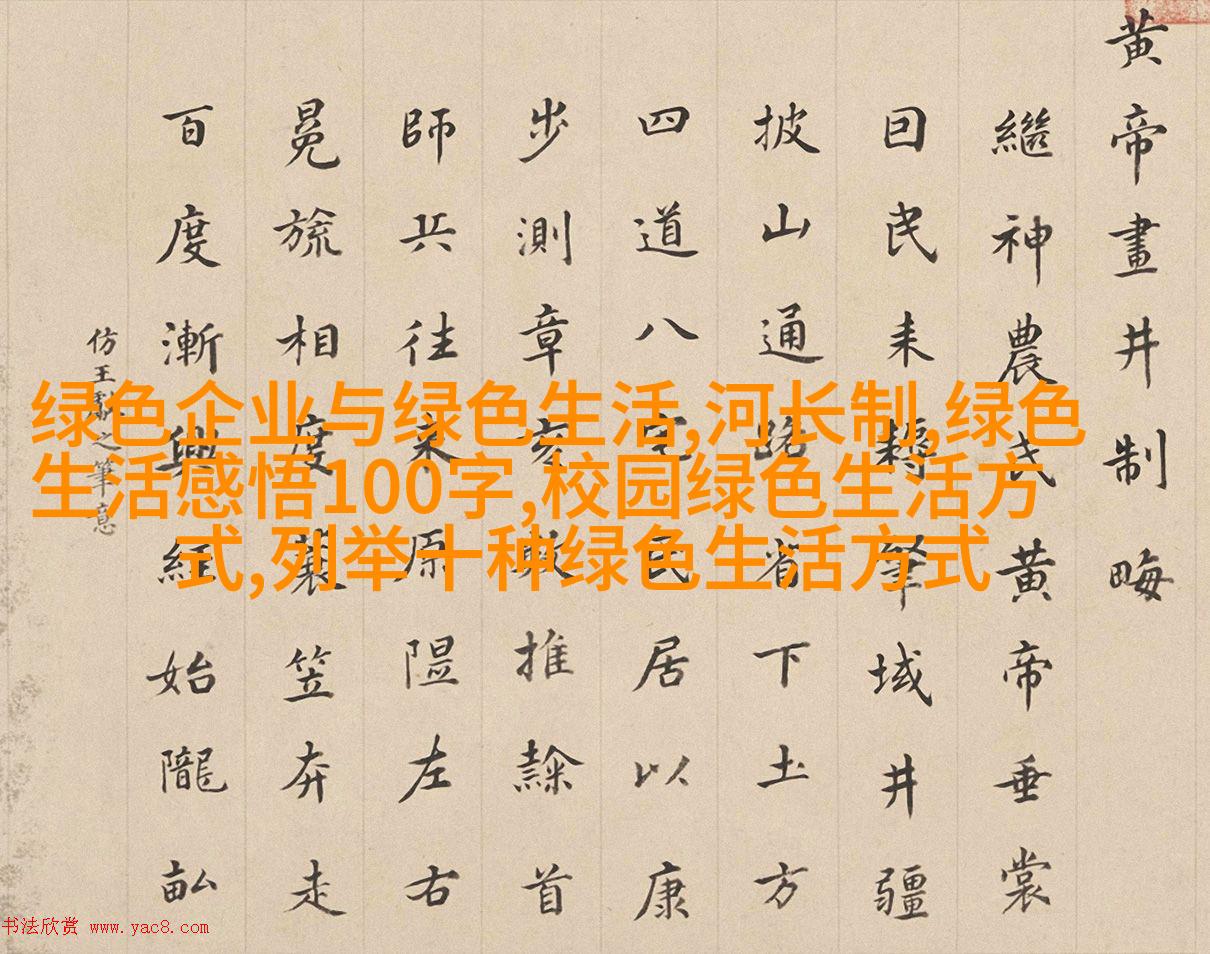 黄帝畫井制畮
繼神農氏黄帝垂裳
囙民耒耨肇域井疆
披山通路省下土方
四道八宅民居以康
步測章亥畝推隸首
師兵往来原隰左右
冕旒相度蓑笠奔走
百度漸興經始隴畝
仿王肅之筆意
绿色企业与绿色生活,河长制,绿色
生活感悟100字,校园绿色生活方
式,列举十种绿色生活方式
书法欣赏 www.yac8.com